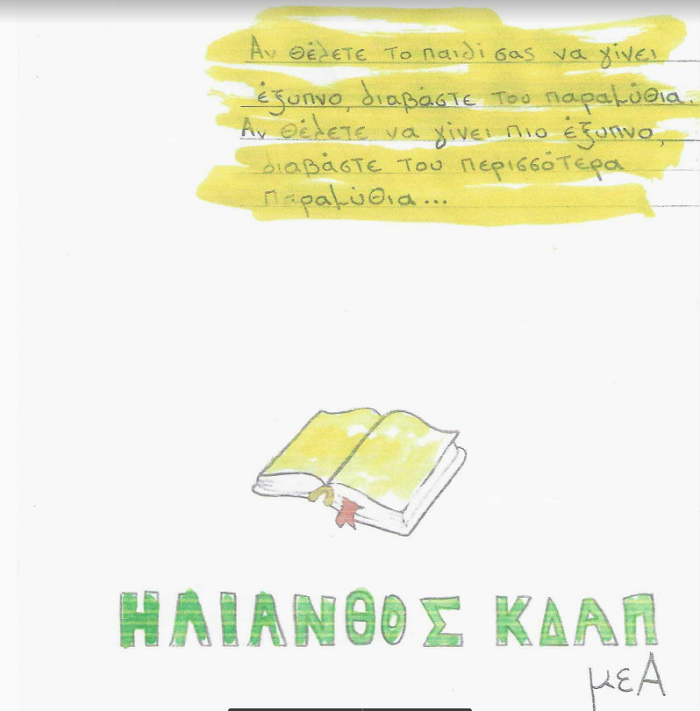 Αν θέλετε το παιδί σας να γίνει
έξυπνο, διαβάστε του παραμύθια.
Αν θέλετε να γίνει πιο έξυπνο,
διαβάστε του περισσότερα
παραμύθια...
ΗΛΙΑΝΘΟΣ ΚΔΑΠ
μεΑ